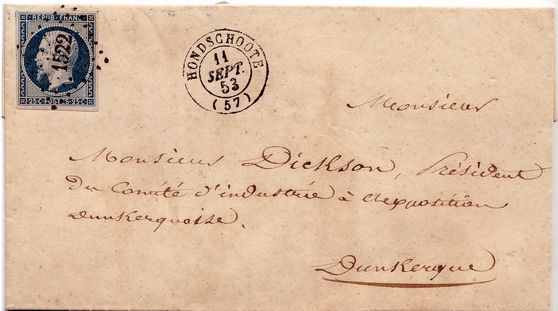 REPUB. FRANC.
1522
25 c. POSTES 25 c.
HONDSCHOOTE
11
SEPT.
53
(57)
Monsieur
Monsieur Dickson, Président
Du Comité d'industrie à l'exposition
Dunkerquoise.
Dunkerque